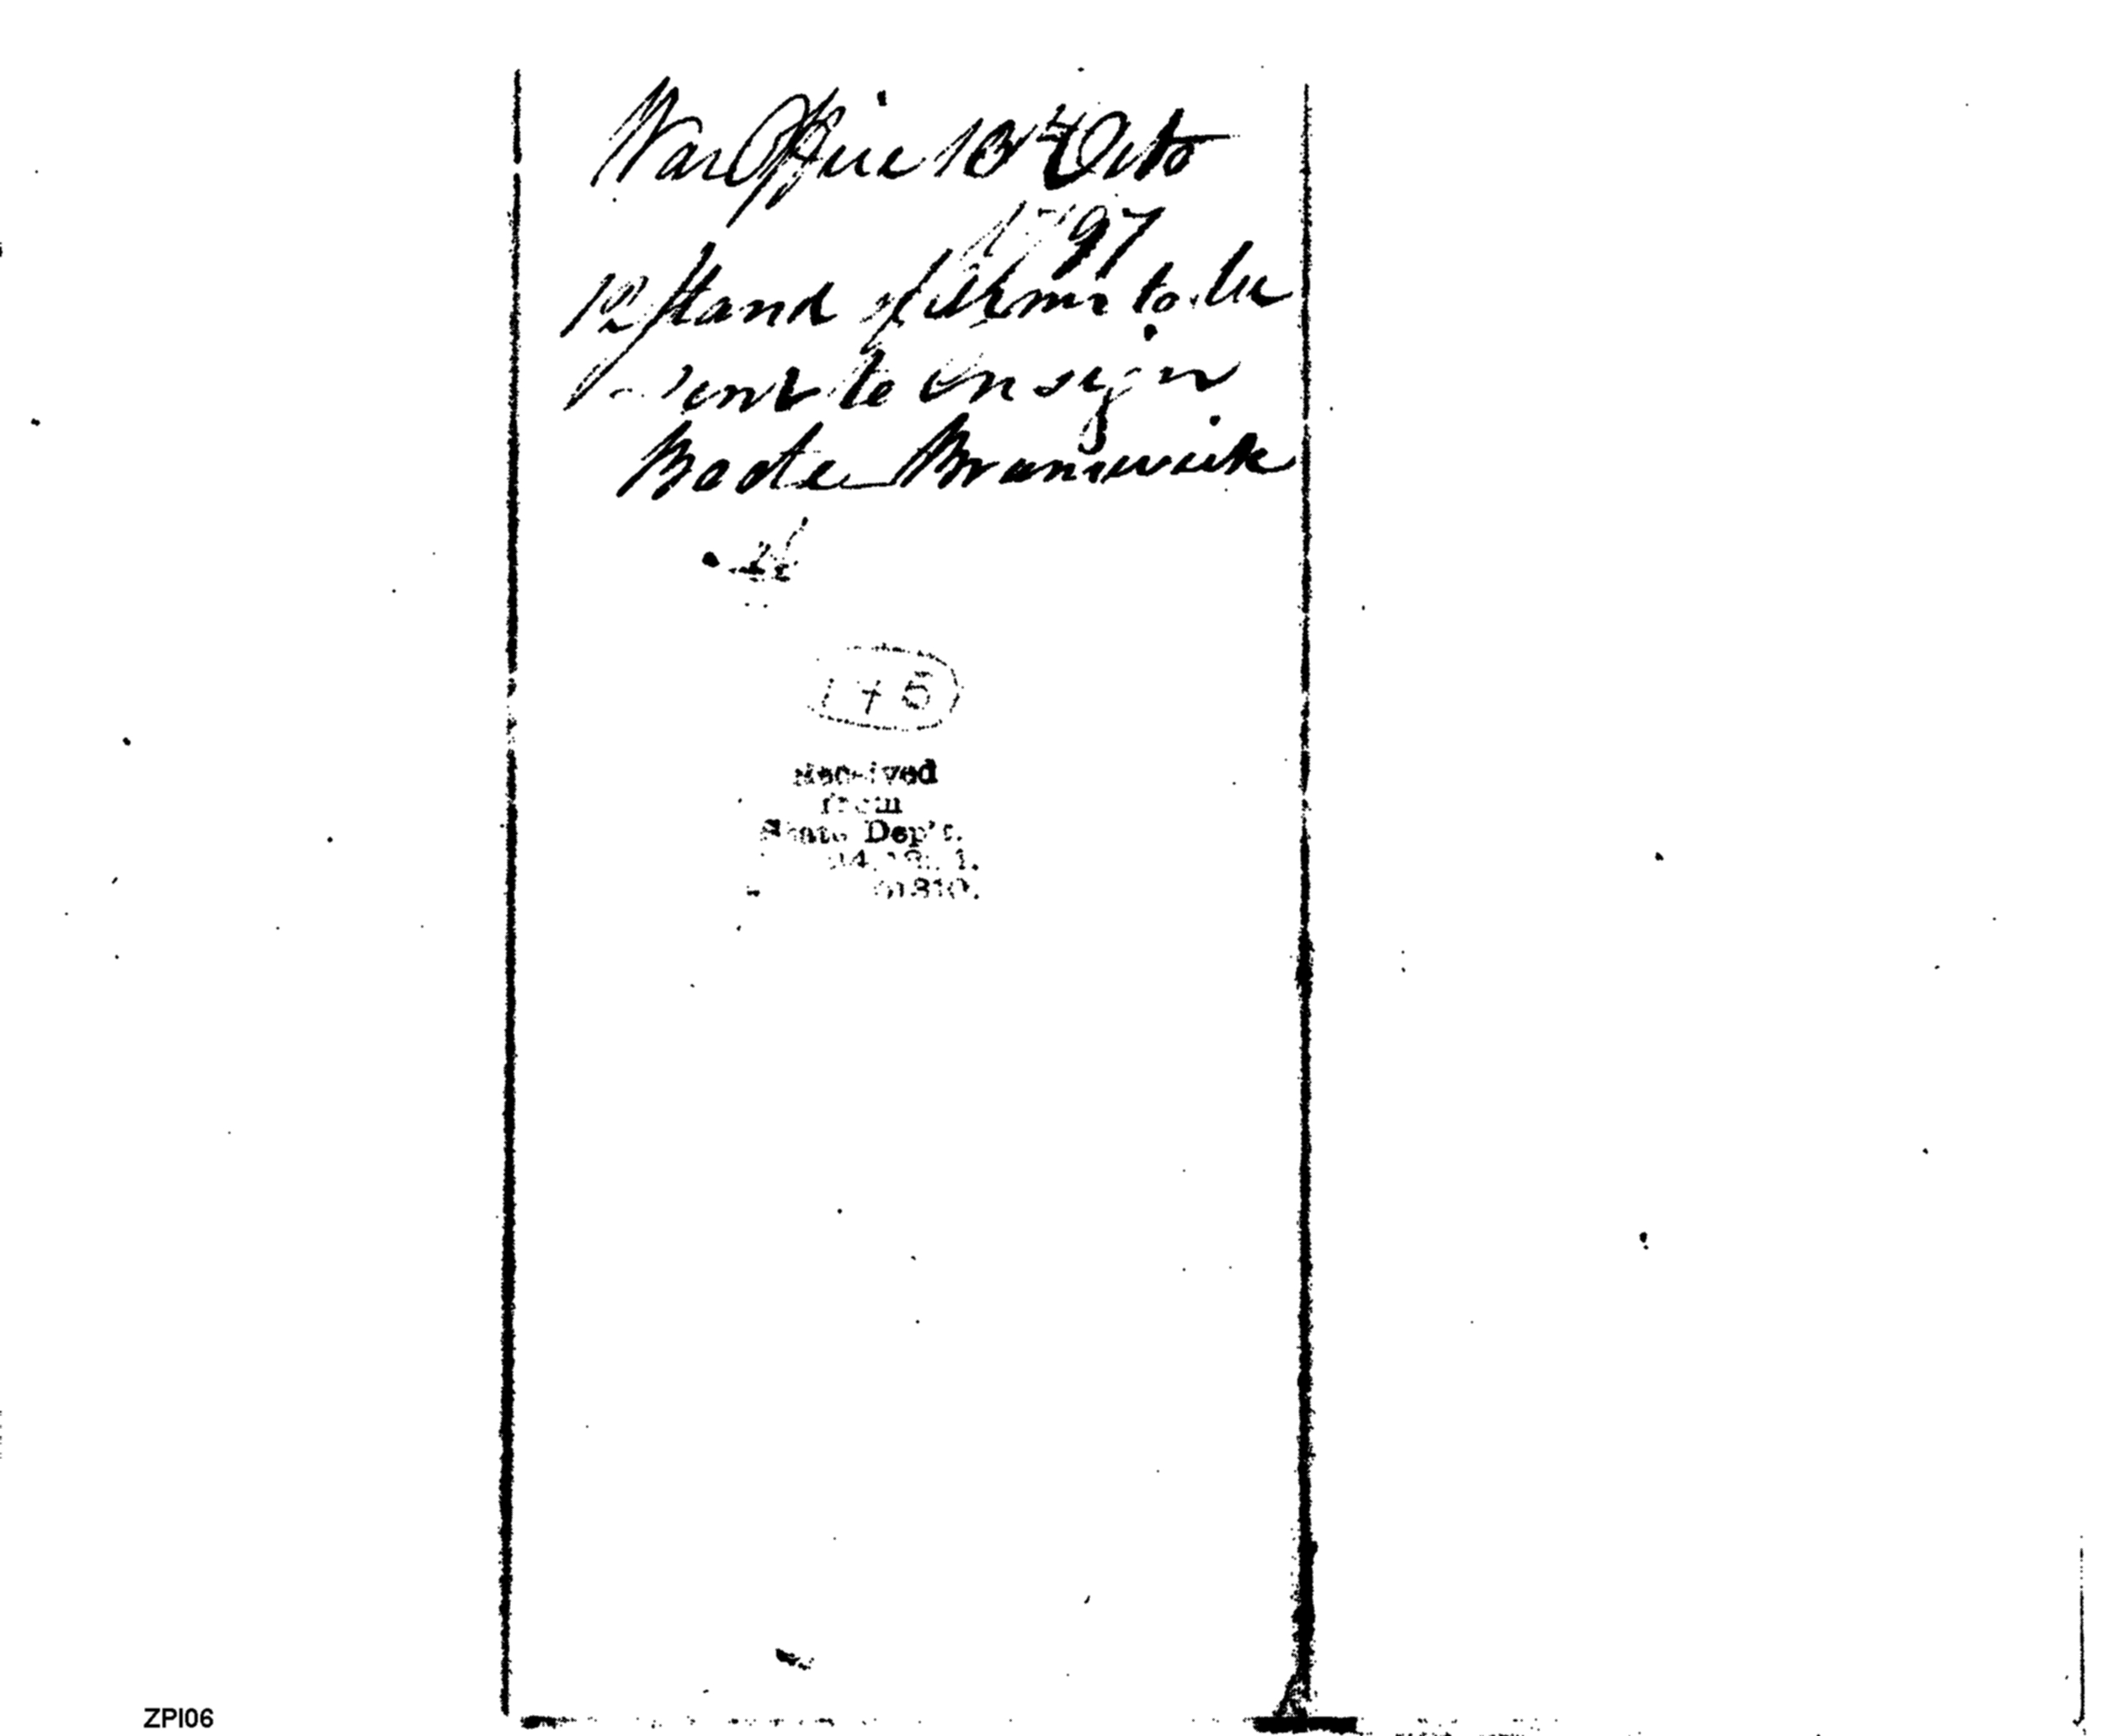 War Office 13th Octo
1797
12 stand of Arms to be
sent to Ensign
Bode Brunswick
Received
from
State Dep't.
ZPI06